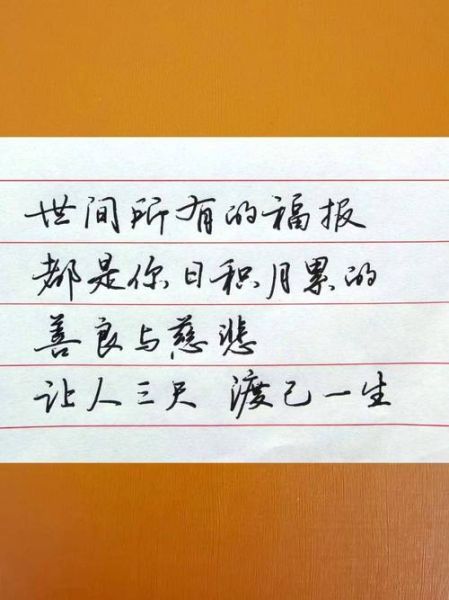 世间所有的福报
都是你日积月累的
善良与慈悲
让人三尺 渡己一生